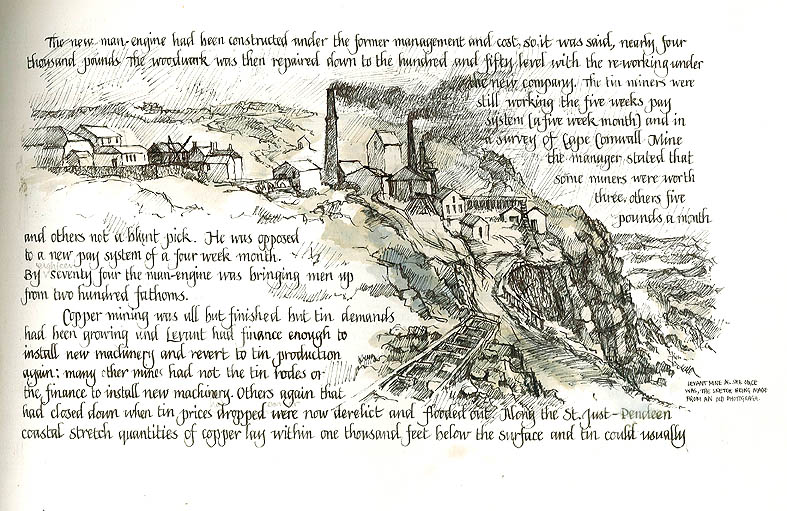 The new man-engine had been constructed under the former management and cost, so it was said, nearly four
thousand pounds. The woodwork was then repaired down to the hundred and fifty level with the re-working under
the new company. The tin miners were
still working the five weeks pay
system (a five week month) and in
a survey of Cape Cornwall Mine
the manager stated that
some miners were worth
three, others five
pounds a month
and others not a blunt pick. He was opposed
to a new pay system of a four week month.
By seventy four the man-engine was bringing men up
from two hundred fathoms.
Copper mining was all but finished but tin demands
had been growing and Levant had finance enough to
install new machinery and revert to tin production
again: many other mines had not the tin lodes or
the finance to install new machinery. Others again that
had closed down when tin prices dropped were now derelict and flooded out. Along the St. Just-Pendeen
coastal stretch quantities of copper lay within one thousand feet below the surface and tin could usually
LEVANT MINE AS SHE ONCE
WAS, THE SKETCH BEING MADE
FROM AN OLD PHOTOGRAPH.